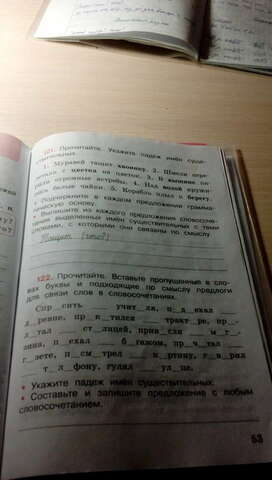 121. Прочитайте. Укажите падеж имён суще-
ствительных.
1. Муравей тащит хвоинку. 2. Пчела пере-
летела с цветка на цветок. 3. В вышине па-
рили огромные ястребы. 4. Над водой кружи-
лись белые чайки. 5. Корабль плыл к берегу.
• Подчеркните в каждом предложении грамма-
тическую основу.
• Выпишите из каждого предложения словосоче-
ния выделенных имён существительных с теми
словами, с которыми они связаны по смыслу.
Тащит (что?)
122. Прочитайте. Вставьте пропущенные в сло-
вах буквы и подходящие по смыслу предлоги
для связи слов в словосочетаниях.
Спр__сить ____ учит__ля, п__д__ехал ____
д__ревне, пр__к__тился ____ тракт__ре, пр__-
л__тал ____ ст__лицей, прин__сла ____ м__г__-
зина, п__ехал ____ б__гажом, пр__ч__тал ____
г__зете, п__см__трел ____ к__ртину, г__в__рил
____ т__л__фону, гулял ____ ул__це.
• Укажите падеж имён существительных.
• Составьте и запишите предложение с любым
словосочетанием.
53